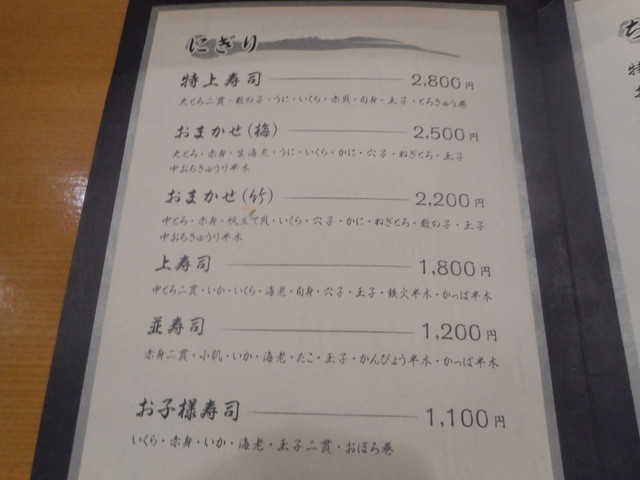 にぎり
特上寿司 2,800円
大とろ二貫・数の子・うに・いくら・赤貝・旬身・玉子・とろきゅう巻
おまかせ(梅) 2,500円
大とろ・赤身・生海老・うに・いくら・かに・穴子・ねぎとろ・玉子
中おちきゅうり半木
おまかせ(竹) 2,200円
中とろ・赤身・帆立て貝・いくら・穴子・かに・ねぎとろ・数の子・玉子
中おちきゅうり半木
上寿司 1,800円
中とろ二貫・いか・いくら・海老・旬身・穴子・玉子・鉄火半木・かっぱ半木
並寿司 1,200円
赤身二貫・小肌・いか・海老・たこ・玉子・かんぴょう半木・かっぱ半木
お子様寿司 1,100円
いくら・赤身・いか・海老・玉子二貫・おぼろ巻
ち
特